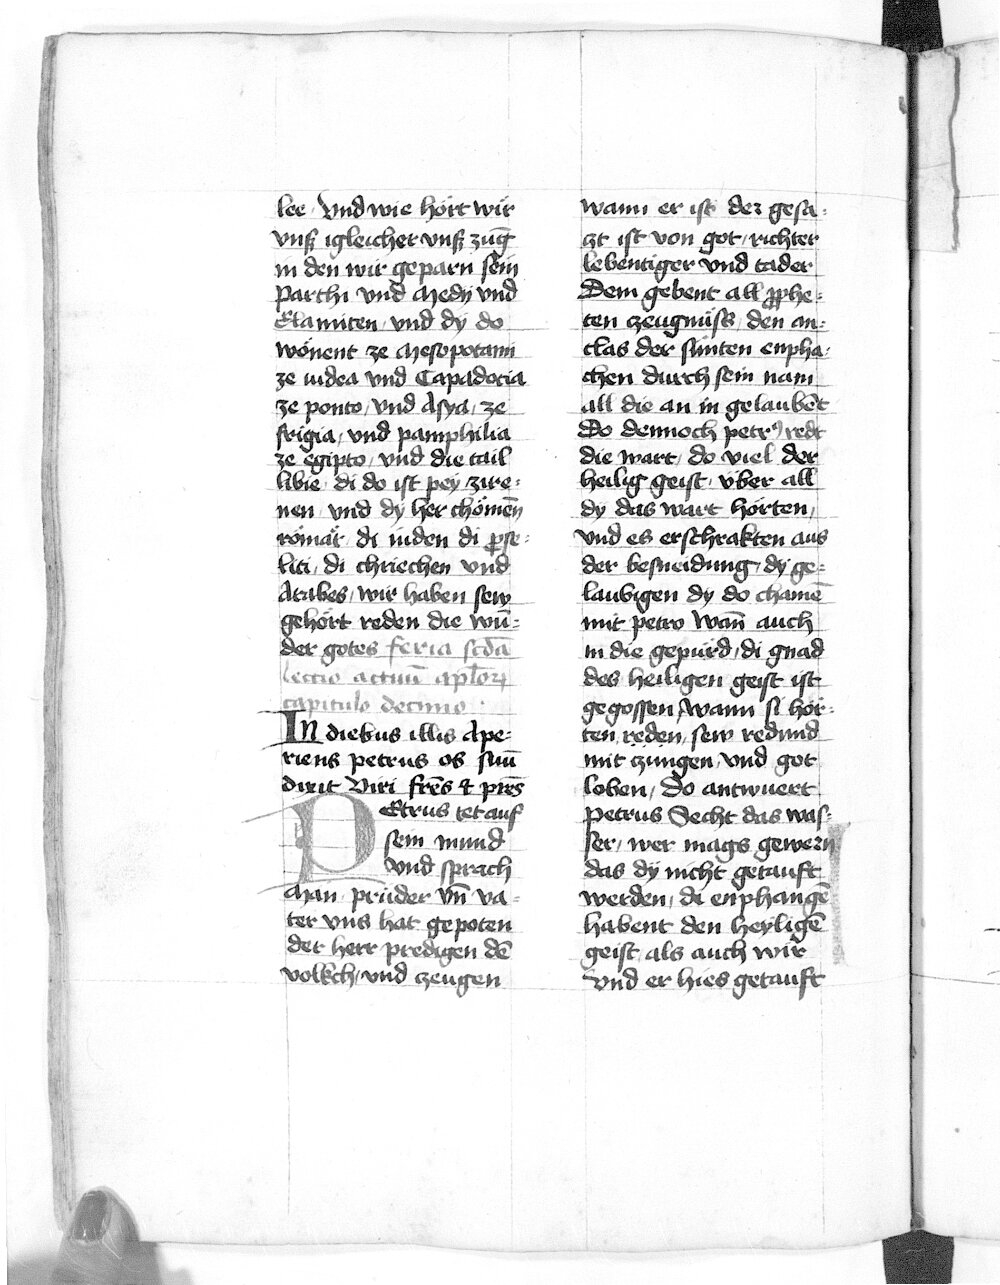 lee Vnd wie hört wir
vnß igleicher vnß zūg
in den wir geparn sein
Parthi vnd Medij vnd
Elamiten vnd dy do
wönent ze Mesopotami
ze iudea vnd Capadocia
ze ponto, vnd Asya, ze
frigia, vnd pamphilia
ze egipto, vnd die tail
libie, di do ist pey zire-
nen, vnd dy her chömen
römär, di iuden di ꝓse-
liti, di chriechen vnd
Arabes, wir haben sew
gehört reden die wū-
der gotes feria scda
lectio actuū aplorꝝ
capitulo decimo
In diebus illis Ape-
riens petrus os suū
dixit Viri frēs ⁊ prēs
PEtrus tet auf
sein mund
vnd sprach
Man, prüder vn̄ va-
ter vns hat gepoten
der herr predigen dē
volkch, vnd zeugen
wann er ist der gesa-
czt ist von got, richter
lebentiger vnd tader
Dem gebent all ꝓphe-
ten czeugnüss, den an-
tlas der sünten enpha-
chen durch sein nam
all die an in gelaubēt
Do dennoch petrꝰ redt
die wart, do viel der
heilig geist, über all
dy das wart hörten,
vnd es erschrakten aus
der besneidung, dy ge-
laubigen dy do chamē
mit petro Wan̄ auch
in die gepürd, di gnad
des heiligen geist ist
gegossen, Wann si hör-
ten reden, sew redund
mit czungen, vnd got
loben, Do antwuert
petrus Secht das was-
ser, wer mags gewern
das dy nicht getauft
werden, di enphangē
habent den heyligē
geist als auch wir
Vnd er hies getauft